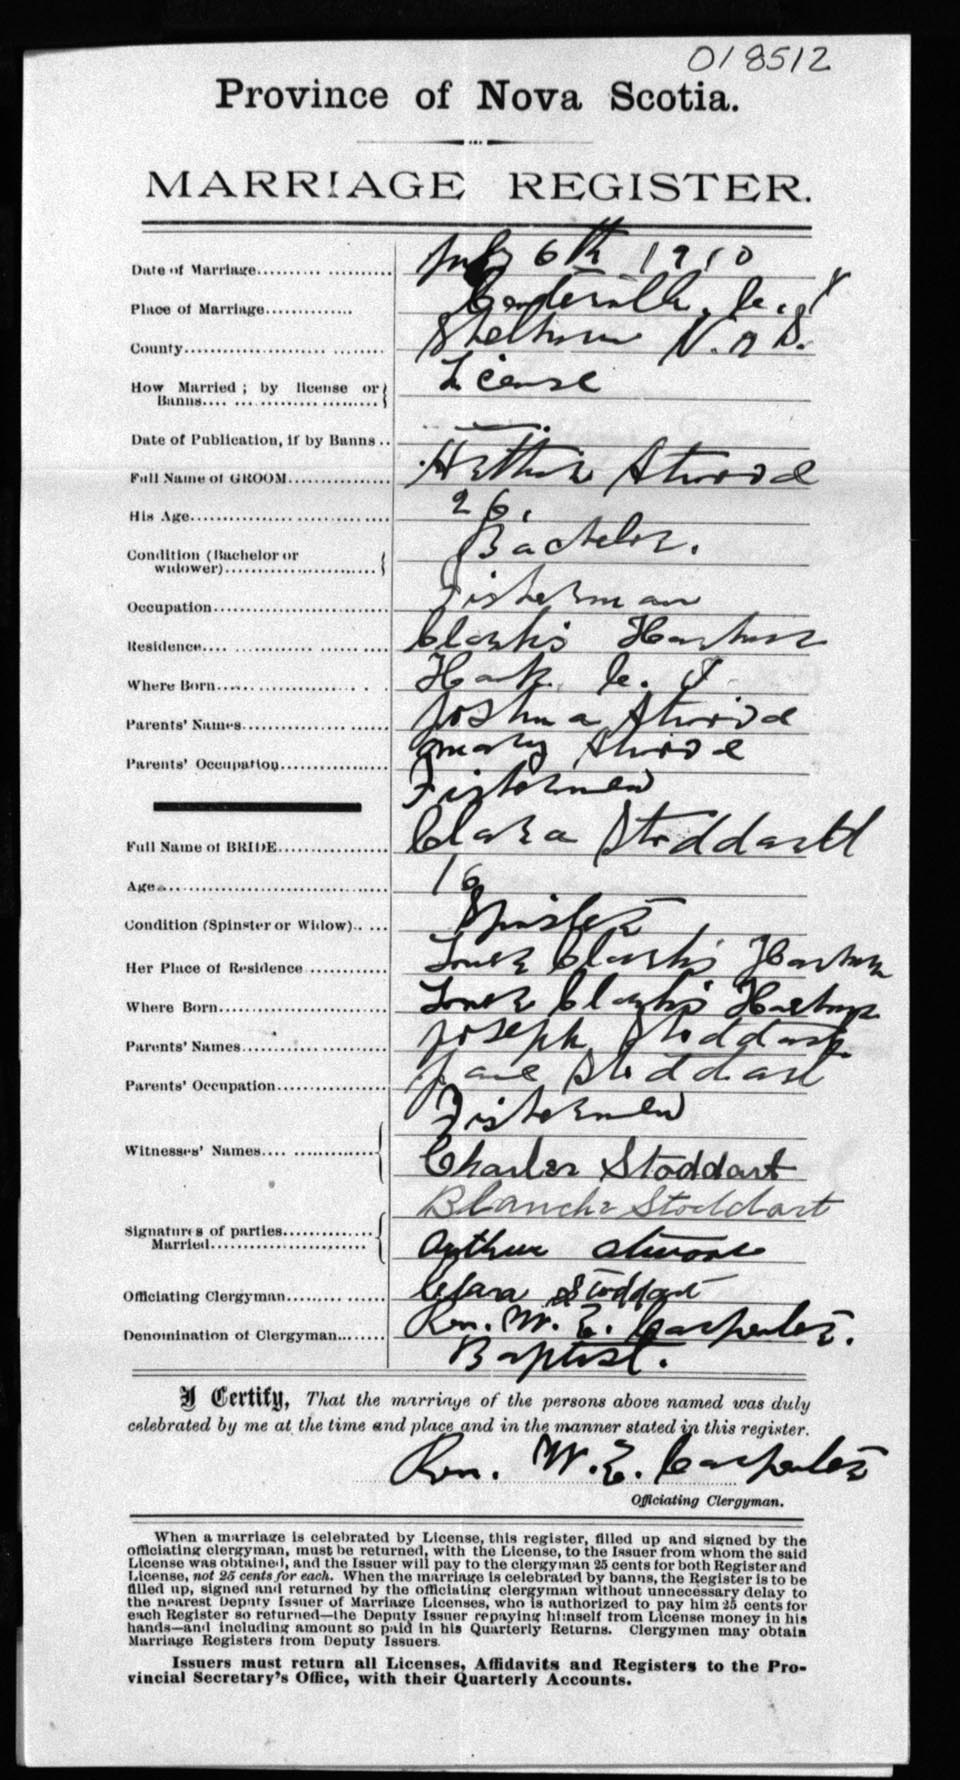 018512
Province of Nova Scotia.
MARRIAGE REGISTER.
Date of Marriage July 6th 1910
Place of Marriage Centerville, C. I
County Shelburne N. S.
How Married ; by license or License
Banns
Date of Publication, if by Banns
Full Name of GROOM Arthur Atwood
His Age 26.
Condition (Bachelor or Bachelor.
widower)
Occupation Fisherman
Residence Clark's Harbour
Where Born C. I
Parents' Names Joshua Atwood
Mary Atwood
Parents' Occupation Fishermen
Full Name of BRIDE Clara Stoddart
Age 16
Condition (Spinster or Widow) Spinster
Her Place of Residence Lower Clark's Harbour
Where Born Lower Clark's Harbour
Parents' Names Joseph Stoddart
Jane Stoddart
Parents' Occupation Fishermen
Witnesses' Names Charles Stoddart
Blanche Stoddart
Signatures of parties Arthur Atwood
Married Clara Stoddart
Officiating Clergyman Rev. W. E. Carpenter.
Denomination of Clergyman Baptist.
I Certify, That the marriage of the persons above named was duly
celebrated by me at the time and place and in the manner stated in this register.
Rev. W. E. Carpenter
Officiating Clergyman.
When a marriage is celebrated by License, this register, filled up and signed by the
officiating clergyman, must be returned, with the License, to the Issuer from whom the said
License was obtained, and the Issuer will pay to the clergyman 25 cents for both Register and
License, not 25 cents for each. When the marriage is celebrated by banns, the Register is to be
filled up, signed and returned by the officiating clergyman without unnecessary delay to
the nearest Deputy Issuer of Marriage Licenses, who is authorized to pay him 25 cents for
each Register so returned—the Deputy Issuer repaying himself from License money in his
hands—and including amount so paid in his Quarterly Returns. Clergymen may obtain
Marriage Registers from Deputy Issuers.
Issuers must return all Licenses, Affidavits and Registers to the Pro-
vincial Secretary's Office, with their Quarterly Accounts.